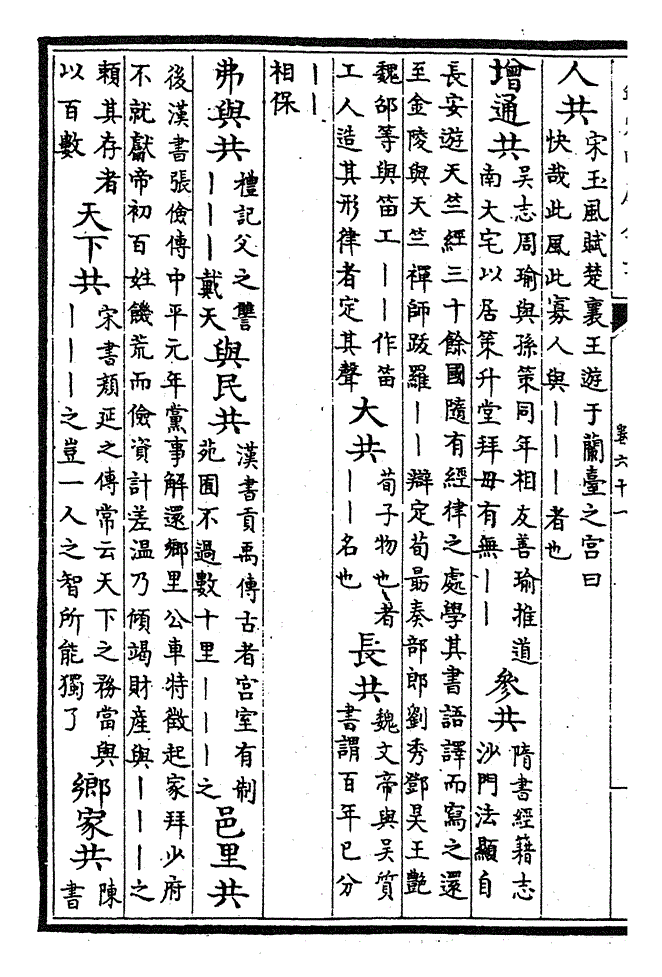 卷六十一
人共
宋玉風賦楚襄王遊于蘭臺之宮曰
快哉此風此寡人與｜｜｜者也
增通共
吳志周瑜與孫策同年相友善瑜推道
南大宅以居策升堂拜母有無｜｜
參共
隋書經籍志
沙門法顯自
長安遊天竺經三十餘國隨有經律之處學其書語譯而寫之還
至金陵與天竺禪師跋羅｜｜辯定荀勗奏部郎劉秀鄧昊王艷
魏邵等與笛工｜｜作笛
工人造其形律者定其聲
大共
荀子物也者
｜｜名也
長共
魏文帝與吳質
書謂百年已分
｜｜
相保
弗與共
禮記父之讐
｜｜｜戴天
與民共
漢書貢禹傳古者宮室有制
苑囿不過數十里｜｜｜之
邑里共
後漢書張儉傳中平元年黨事解還鄉里公車特徵起家拜少府
不就獻帝初百姓饑荒而儉資計差溫乃傾竭財產與｜｜｜之
賴其存者
以百數
天下共
宋書顏延之傳常云天下之務當與
｜｜｜之豈一人之智所能獨了
鄉家共
陳
書